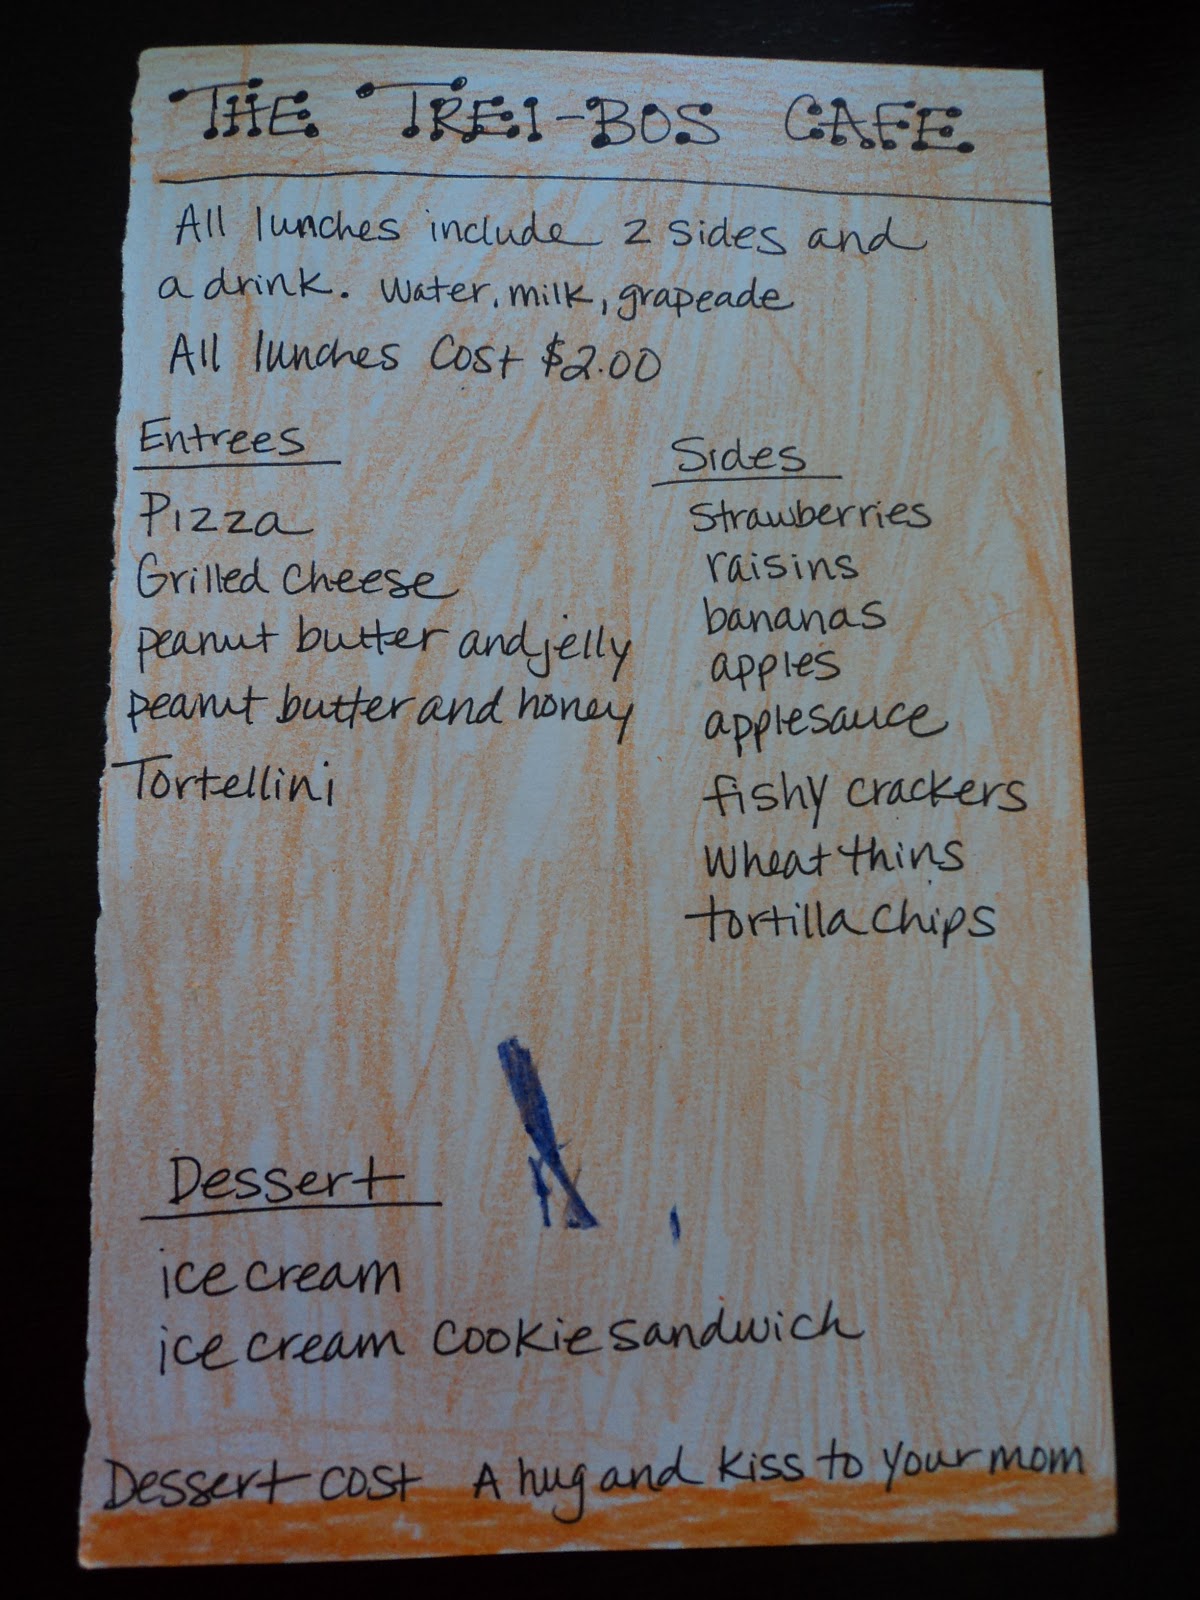 THE TREI-BOS CAFE
All lunches include 2 sides and
a drink. Water, milk, grapeade
All lunches cost $2.00
Entrees
Pizza
Grilled cheese
peanut butter and jelly
peanut butter and honey
Tortellini
Sides
strawberries
raisins
bananas
apples
applesauce
fishy crackers
wheat thins
tortilla chips
Dessert
ice cream
ice cream cookie sandwich
Dessert cost A hug and kiss to your mom